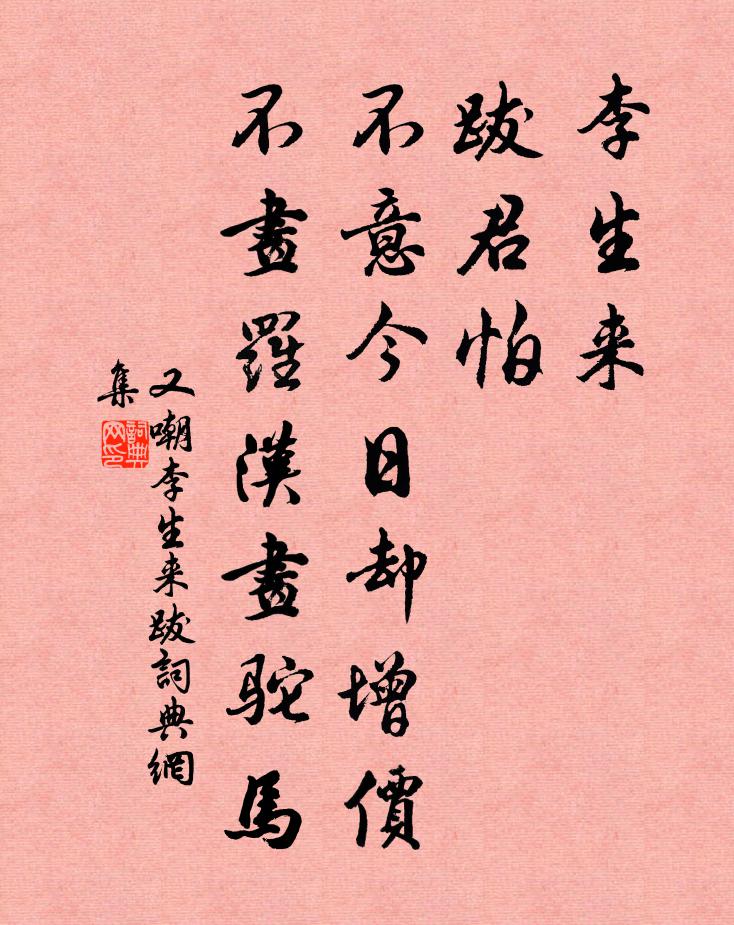 李生来
跋君怕
不意今日却增價
不畫羅漢畫駝馬
又嘲李生来跋詞典網
集
詞典
网印